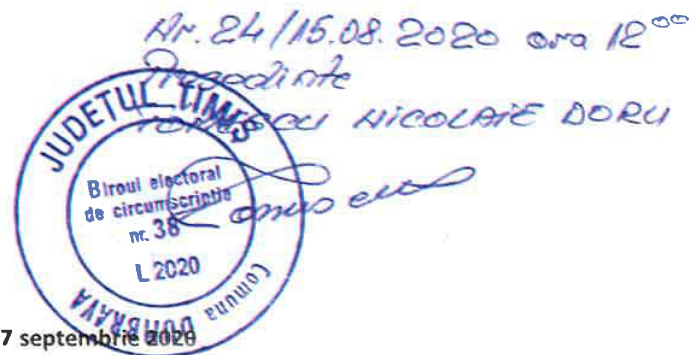 Nr. 24/15.08.2020 ora 12⁰⁰
Presedinte
NICOLAIE DORU
JUDETUL TIMIS
Biroul electoral
de circumscriptie
nr. 38
L 2020
Comuna DUMBRAVA
7 septembrie 2020